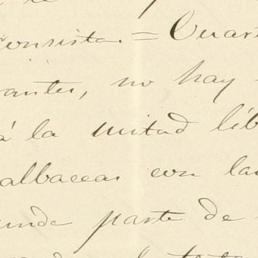 consista = Cuart
antes, no hay
á la mitad lib
albaceas con la
unda parte de